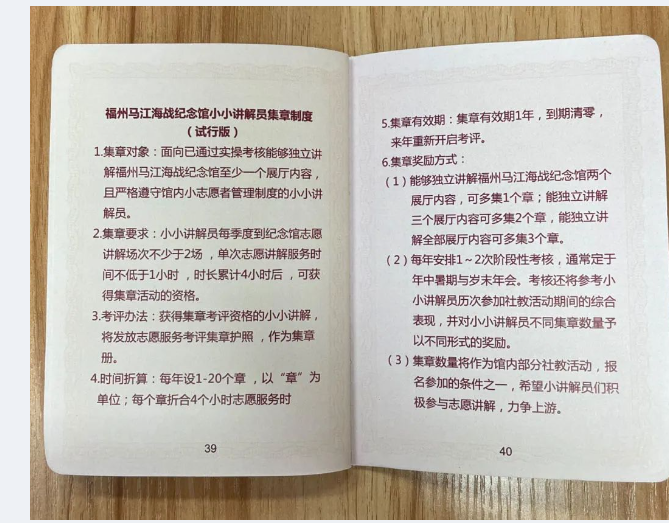 福州马江海战纪念馆小小讲解员集章制度
（试行版）
1.集章对象：面向已通过实操考核能够独立讲
解福州马江海战纪念馆至少一个展厅内容，
且严格遵守馆内小志愿者管理制度的小小讲
解员。
2.集章要求：小小讲解员每季度到纪念馆志愿
讲解场次不少于2场，单次志愿讲解服务时
间不低于1小时，时长累计4小时后，可获
得集章活动的资格。
3.考评办法：获得集章考评资格的小小讲解，
将发放志愿服务考评集章护照，作为集章
册。
4.时间折算：每年设1-20个章，以“章”为
单位；每个章折合4个小时志愿服务时
39
5.集章有效期：集章有效期1年，到期清零，
来年重新开启考评。
6.集章奖励方式：
（1）能够独立讲解福州马江海战纪念馆两个
展厅内容，可多集1个章；能独立讲解
三个展厅内容可多集2个章，能独立讲
解全部展厅内容可多集3个章。
（2）每年安排1~2次阶段性考核，通常定于
年中暑期与岁末年会。考核还将参考小
小讲解员历次参加社教活动期间的综合
表现，并对小小讲解员不同集章数量予
以不同形式的奖励。
（3）集章数量将作为馆内部分社教活动，报
名参加的条件之一，希望小讲解员们积
极参与志愿讲解，力争上游。
40